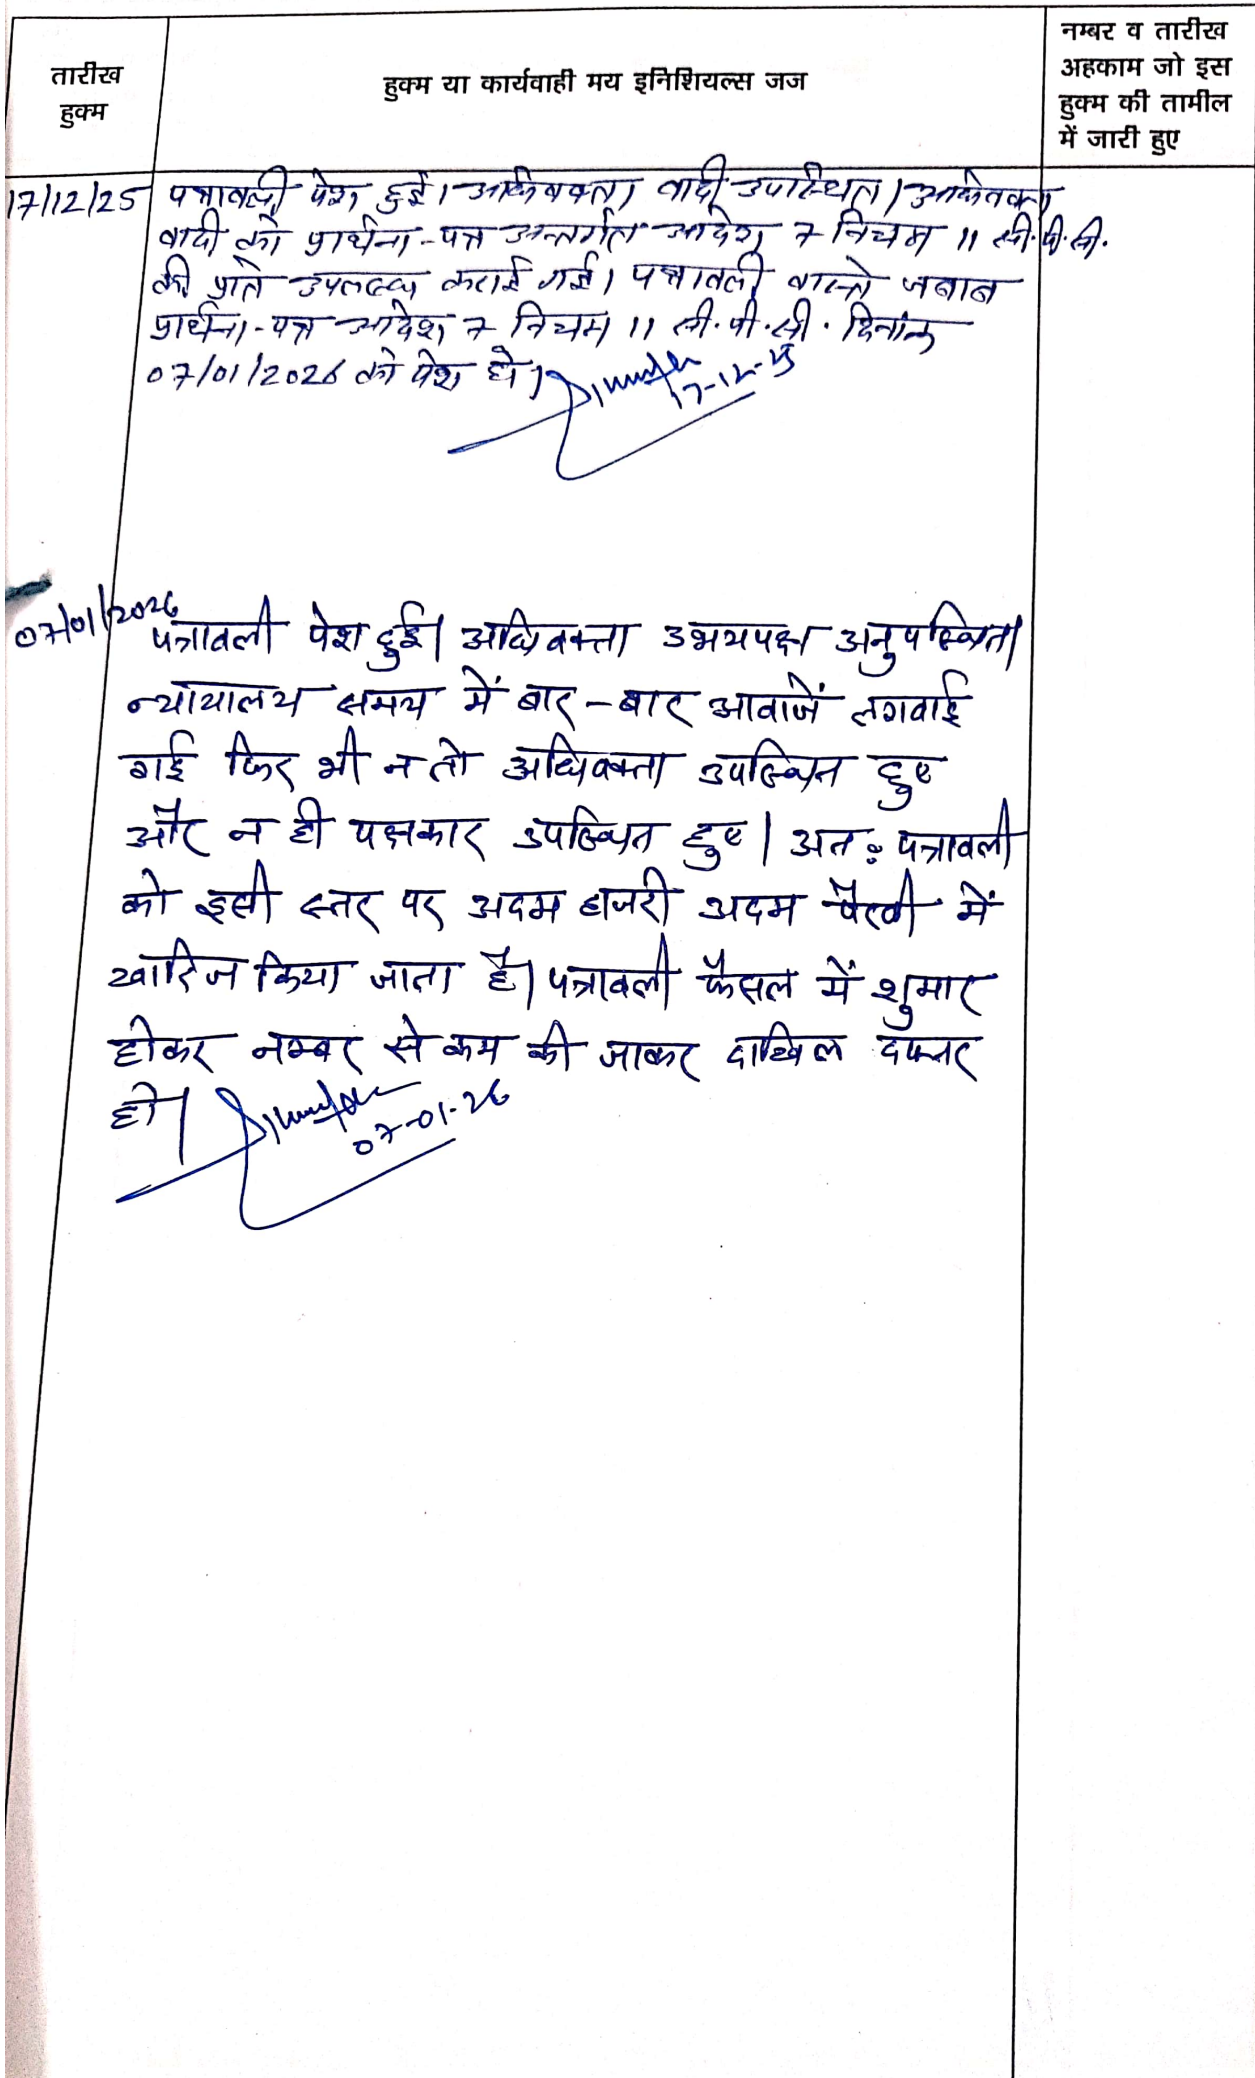 तारीख
हुक्म
हुक्म या कार्यवाही मय इनिशियल्स जज
नम्बर व तारीख
अहकाम जो इस
हुक्म की तामील
में जारी हुए
17/12/25 पत्रावली पेश हुई। अधिवक्ता वादी उपस्थित। अधिवक्ता
वादी को प्रार्थना-पत्र अन्तर्गत आदेश 7 नियम 11 सी.पी.सी.
की प्रति उपलब्ध कराई गई। पत्रावली वास्ते जबाब
प्रार्थना-पत्र आदेश 7 नियम 11 सी.पी.सी. दिनांक
07/01/2026 को पेश हो।
17-12-25
07/01/2026
पत्रावली पेश हुई। अधिवक्ता उभयपक्ष अनुपस्थित।
न्यायालय समय में बार-बार आवाजें लगवाई
गई फिर भी न तो अधिवक्ता उपस्थित हुए
और न ही पक्षकार उपस्थित हुए। अतः पत्रावली
को इसी स्तर पर अदम हाजरी अदम पैरवी में
खारिज किया जाता है। पत्रावली फैसल में शुमार
होकर नम्बर से कम की जाकर दाखिल दफ्तर
हो।
07-01-26